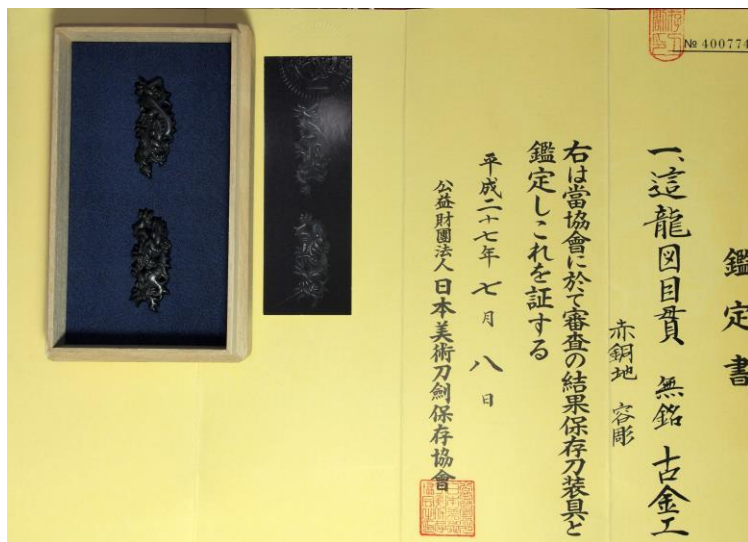 № 400774
鑑定書
一、這龍図目貫 無銘 古金工
赤銅地 容彫
右は當協會に於て審査の結果保存刀装具と
鑑定しこれを証する
平成二十七年 七月 八日
公益財團法人 日本美術刀劍保存協會